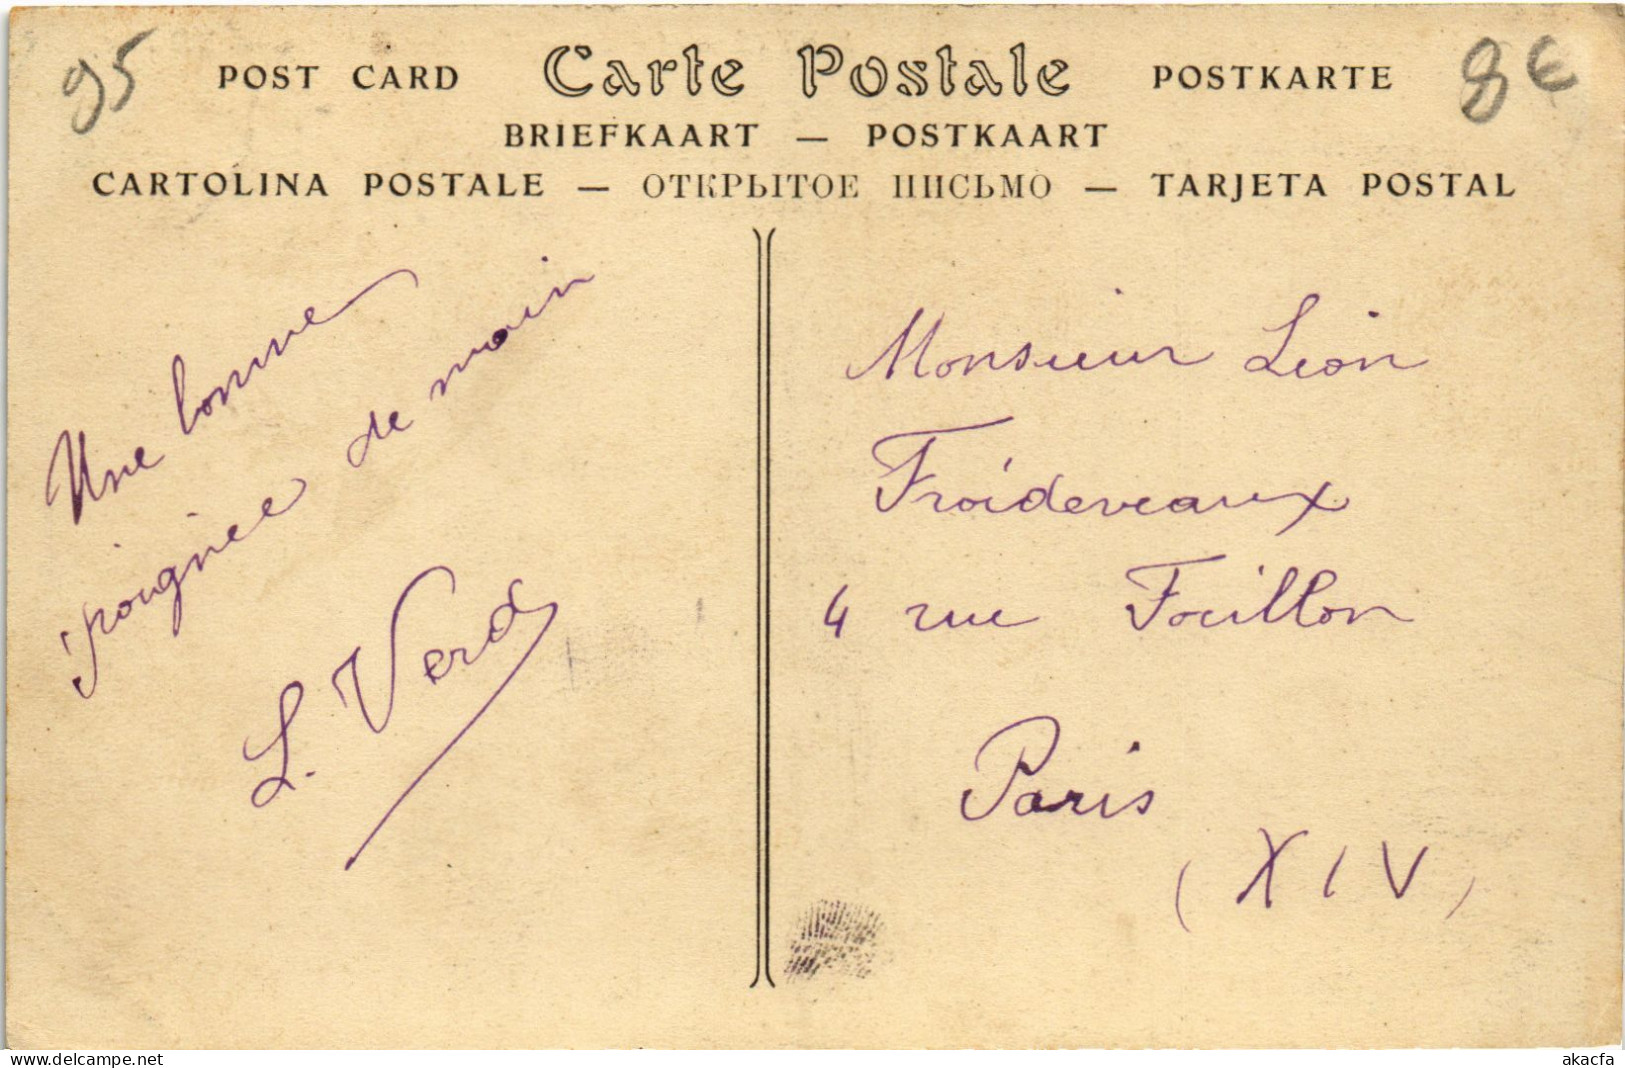 95
8€
POST CARD Carte Postale POSTKARTE
BRIEFKAART — POSTKAART
CARTOLINA POSTALE — ОТКРЫТОЕ ПИСЬМО — TARJETA POSTAL
Une bonne
poignée de main
L. Verd
Monsieur Léon
Froideveaux
4 rue Fouillon
Paris
(XIV)
www.delcampe.net
akacfa